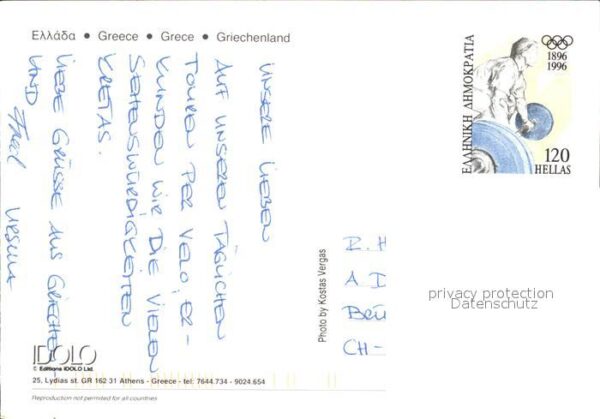 Ελλάδα • Greece • Grece • Griechenland
UNSERE LIEBEN
AUF UNSEREN TÄGLICHEN
TOUREN PER VELO, ER-
KUNDEN WIR DIE VIELEN
SEHENSWÜRDIGKEITEN
KRETAS.
LIEBE GRÜSSE AUS
UND
URSULA
ΕΛΛΗΝΙΚΗ ΔΗΜΟΚΡΑΤΙΑ
1896
1996
120
HELLAS
Photo by Kostas Vergas
R. H
A D
CH-
privacy protection
Datenschutz
IDOLO
© Editions IDOLO Ltd.
25, Lydias st. GR 162 31 Athens - Greece - tel: 7644.734 - 9024.654
Reproduction not permitted for all countries